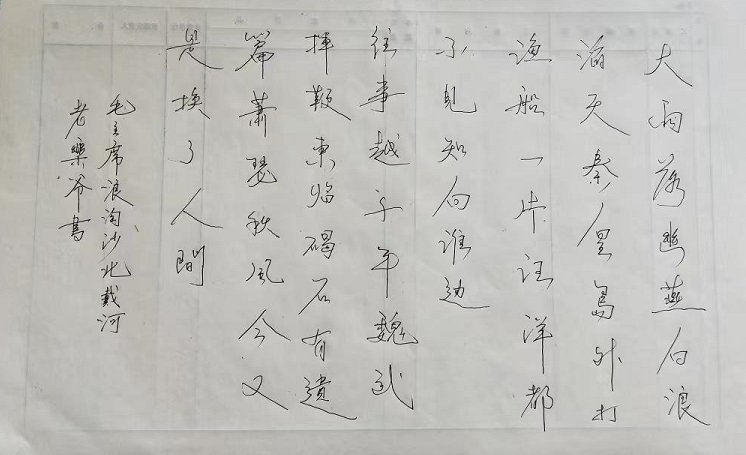 大雨落幽燕白浪
滔天秦皇島外打
渔船一片汪洋都
不見知向谁边
往事越千年魏武
揮鞭東临碣石有遺
篇蕭瑟秋風今又
是换了人間
毛主席浪淘沙北戴河
老樂爷書